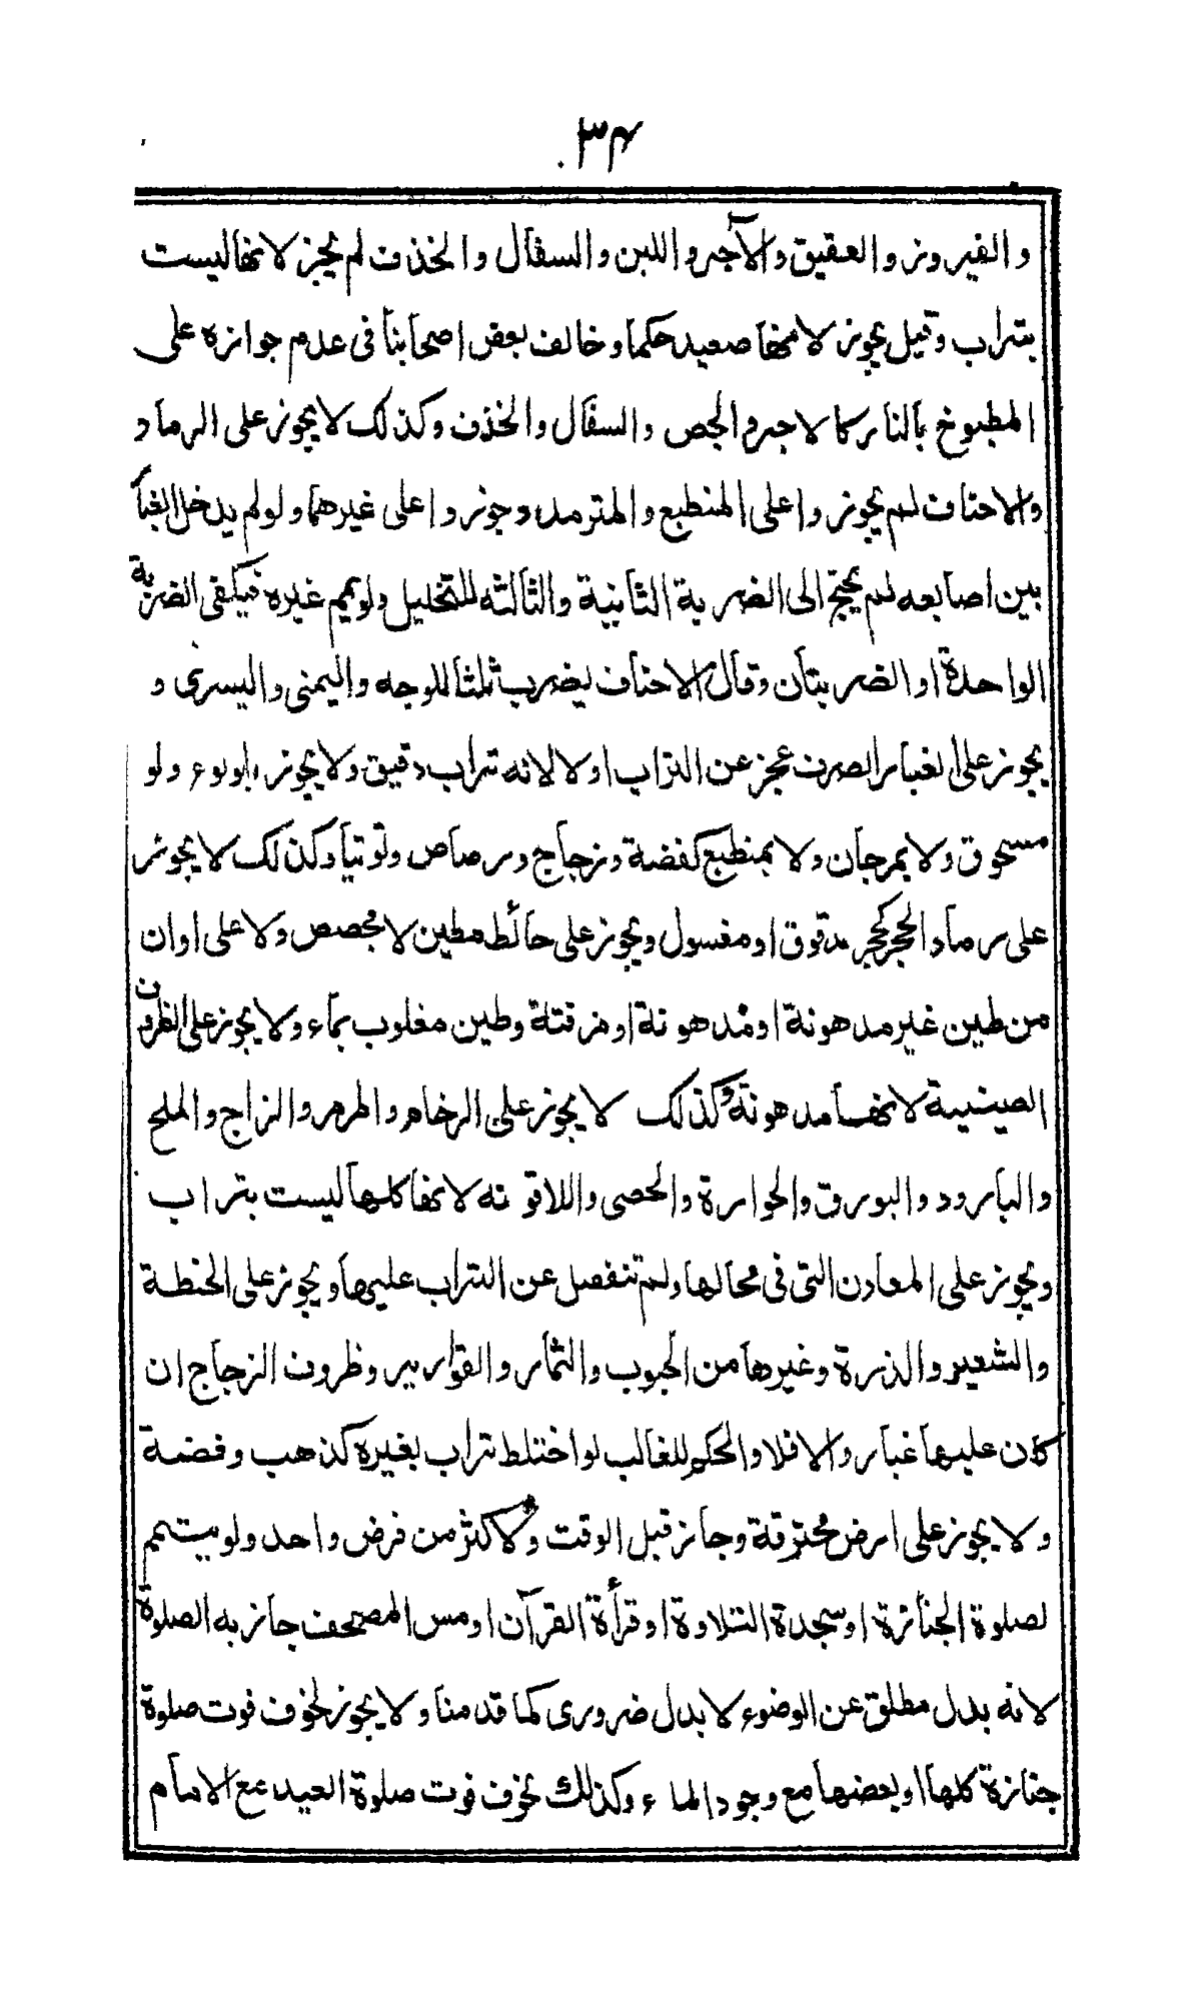 ٣٤
والفيروز والعقيق والآجر واللبن والسفال والخذف لم يجز لانها ليست
بتراب وقيل يجوز لانها صعيد حكما وخالف بعض اصحابنا فى عدم جوازه على
المطبوخ بالنار كالاجر والجص والسفال والخذف وكذلك لا يجوز على الرماد
والاحناف لم يجوزوا على المنطبع والمترمد وجوزوا على غيرهما ولو لم يدخل الغبار
بين اصابعه لم يحتج الى الضربة الثانية والثالثه للتخليل ولو يمم غيره فيكفى الضربة
الواحدة او الضربتان وقال الاحناف يضرب ثلثا للوجه واليمنى واليسرى و
يجوز على الغبار الصرف عجز عن التراب اولا لانه تراب دقيق ولا يجوز بلولوء ولو
مسحوق ولا بمرجان ولا بمنطبع كفضة وزجاج ورصاص وتوتيا وكذلك لا يجوز
على رماد الحجر كحجر مدقوق او مغسول ويجوز على حائط مطين لا مجصص ولا على اوان
من طين غير مدهونة او مدهونة او مزفتة وطين مغلوب بماء ولا يجوز على الظروف
الصينية لانها مدهونة وكذلك لا يجوز على الرخام والمرمر والزاج والملح
والبارود والبورق والحوارة والحصى واللاقونه لانها كلها ليست بتراب
ويجوز على المعادن التى فى محالها ولم تنفصل عن التراب عليها ويجوز على الحنطة
والشعير والذرة وغيرها من الحبوب والثمار والقوارير وظروف الزجاج ان
كان عليها غبار والا فلا والحكم للغالب لو اختلط تراب بغيره كذهب وفضة
ولا يجوز على ارض محترقة وجاز قبل الوقت ولاكثر من فرض واحد ولو يتيمم
لصلوة الجنائزة او سجدة التلاوة او قرأة القرآن او مس المصحف جاز به الصلوة
لانه بدل مطلق عن الوضوء لا بدل ضرورى كما قدمنا ولا يجوز لخوف فوت صلوة
جنازة كلها او بعضها مع وجود الماء وكذلك بخوف فوت صلوة العيد مع الامام